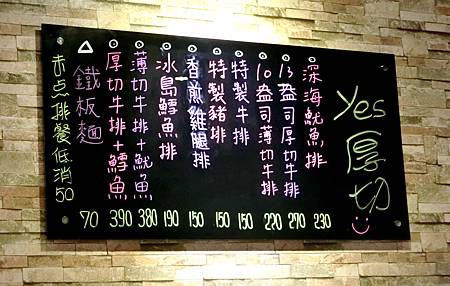 Yes厚切
深海魷魚排 230
13盎司厚切牛排 270
10盎司薄切牛排 220
特製牛排 150
特製豬排 150
香煎雞腿排 150
冰島鱈魚排 190
薄切牛排+魷魚 380
厚切牛排+鱈魚 390
鐵板麵 70
未点排餐低消50